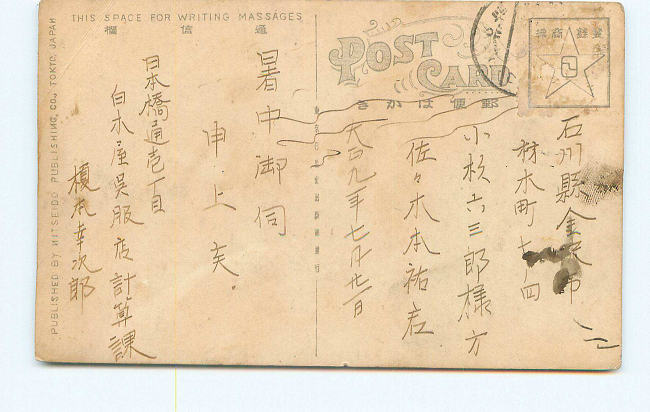 THIS SPACE FOR WRITING MASSAGES
欄信通
POST CARD
きかは便郵
PUBLISHED BY MITSEIDO PUBLISHING, CO., TOKYO, JAPAN
石川縣金沢市
材木町七ノ四
小杉六三郎様方
佐々木本祐君
大正九年七月廿一日
暑中御伺
申上候
日本橋通壱丁目
白木屋呉服店計算課
榎本幸次郎